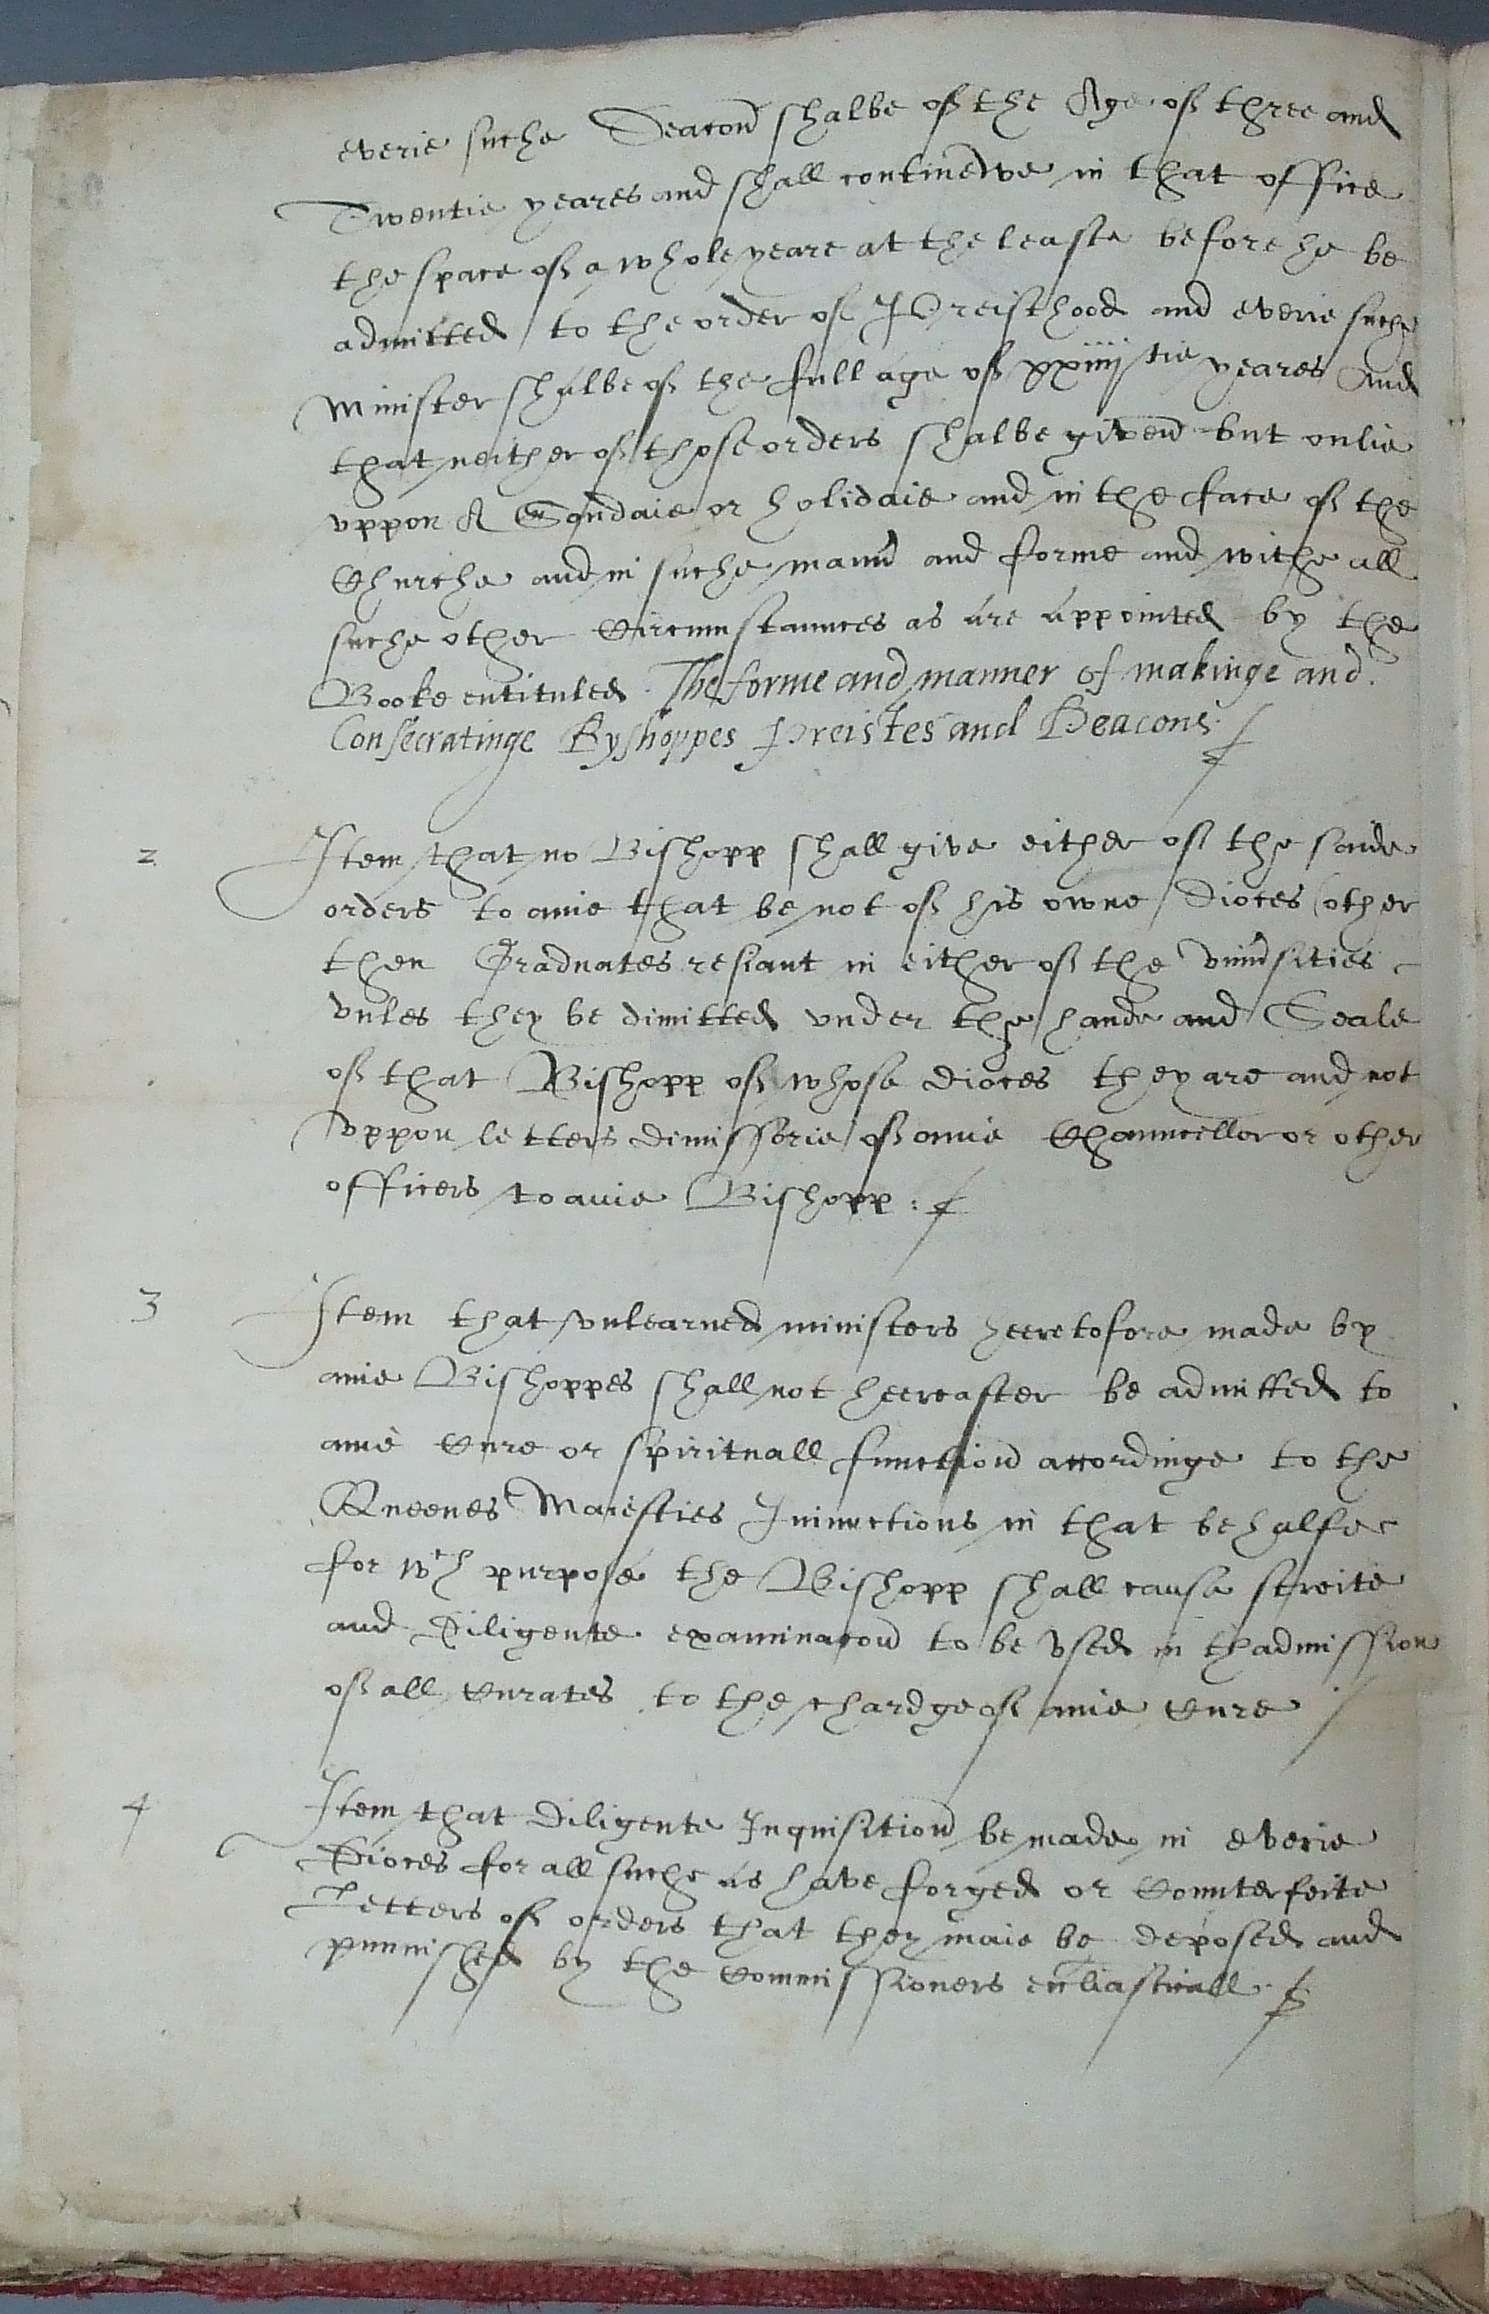 everie suche Deacon shalbe of the Age of three and
Twentie yeares and shall continewe in that office
the space of a whole yeare at the leaste before he be
admitted to the order of Preisthood and everie suche
Minister shalbe of the full age of xxiiij tie yeares And
that neither of those orders shalbe given but onlie
vppon A Sondaie or holidaie and in the face of the
Churche and in suche mann and forme and withe all
suche other Circumstaunces as are appointed by the
Booke entituled The forme and manner of makinge and.
Consecratinge Byshoppes Preistes and Deacons
2 Item that no Bishopp shall give either of the saide
orders to anie that be not of his owne Dioces (other
then Graduates resiant in either of the vniusities
vnles they be dimitted vnder the hande and Seale
of that Bishopp of whose dioces they are and not
vppon letters dimissorie of anie Chauncellor or other
officers to anie Bishopp :
3 Item that vnlearned ministers heeretofore made by
anie Bishoppes shall not heereafter be admitted to
anie Cure or spirituall function accordinge to the
Queenes Maiesties Iniunctions in that behalfe
for wch purpose the Bishopp shall cause streite
and Diligente examinacon to be vsed in thadmission
of all Curates to the chardge of anie Cure
4 Item that Diligente Inquisition be made in everie
Dioces for all suche as have forged or Counterfeite
Letters of orders that they maie be deposed and
punnished by the Commissioners eccliasticall.